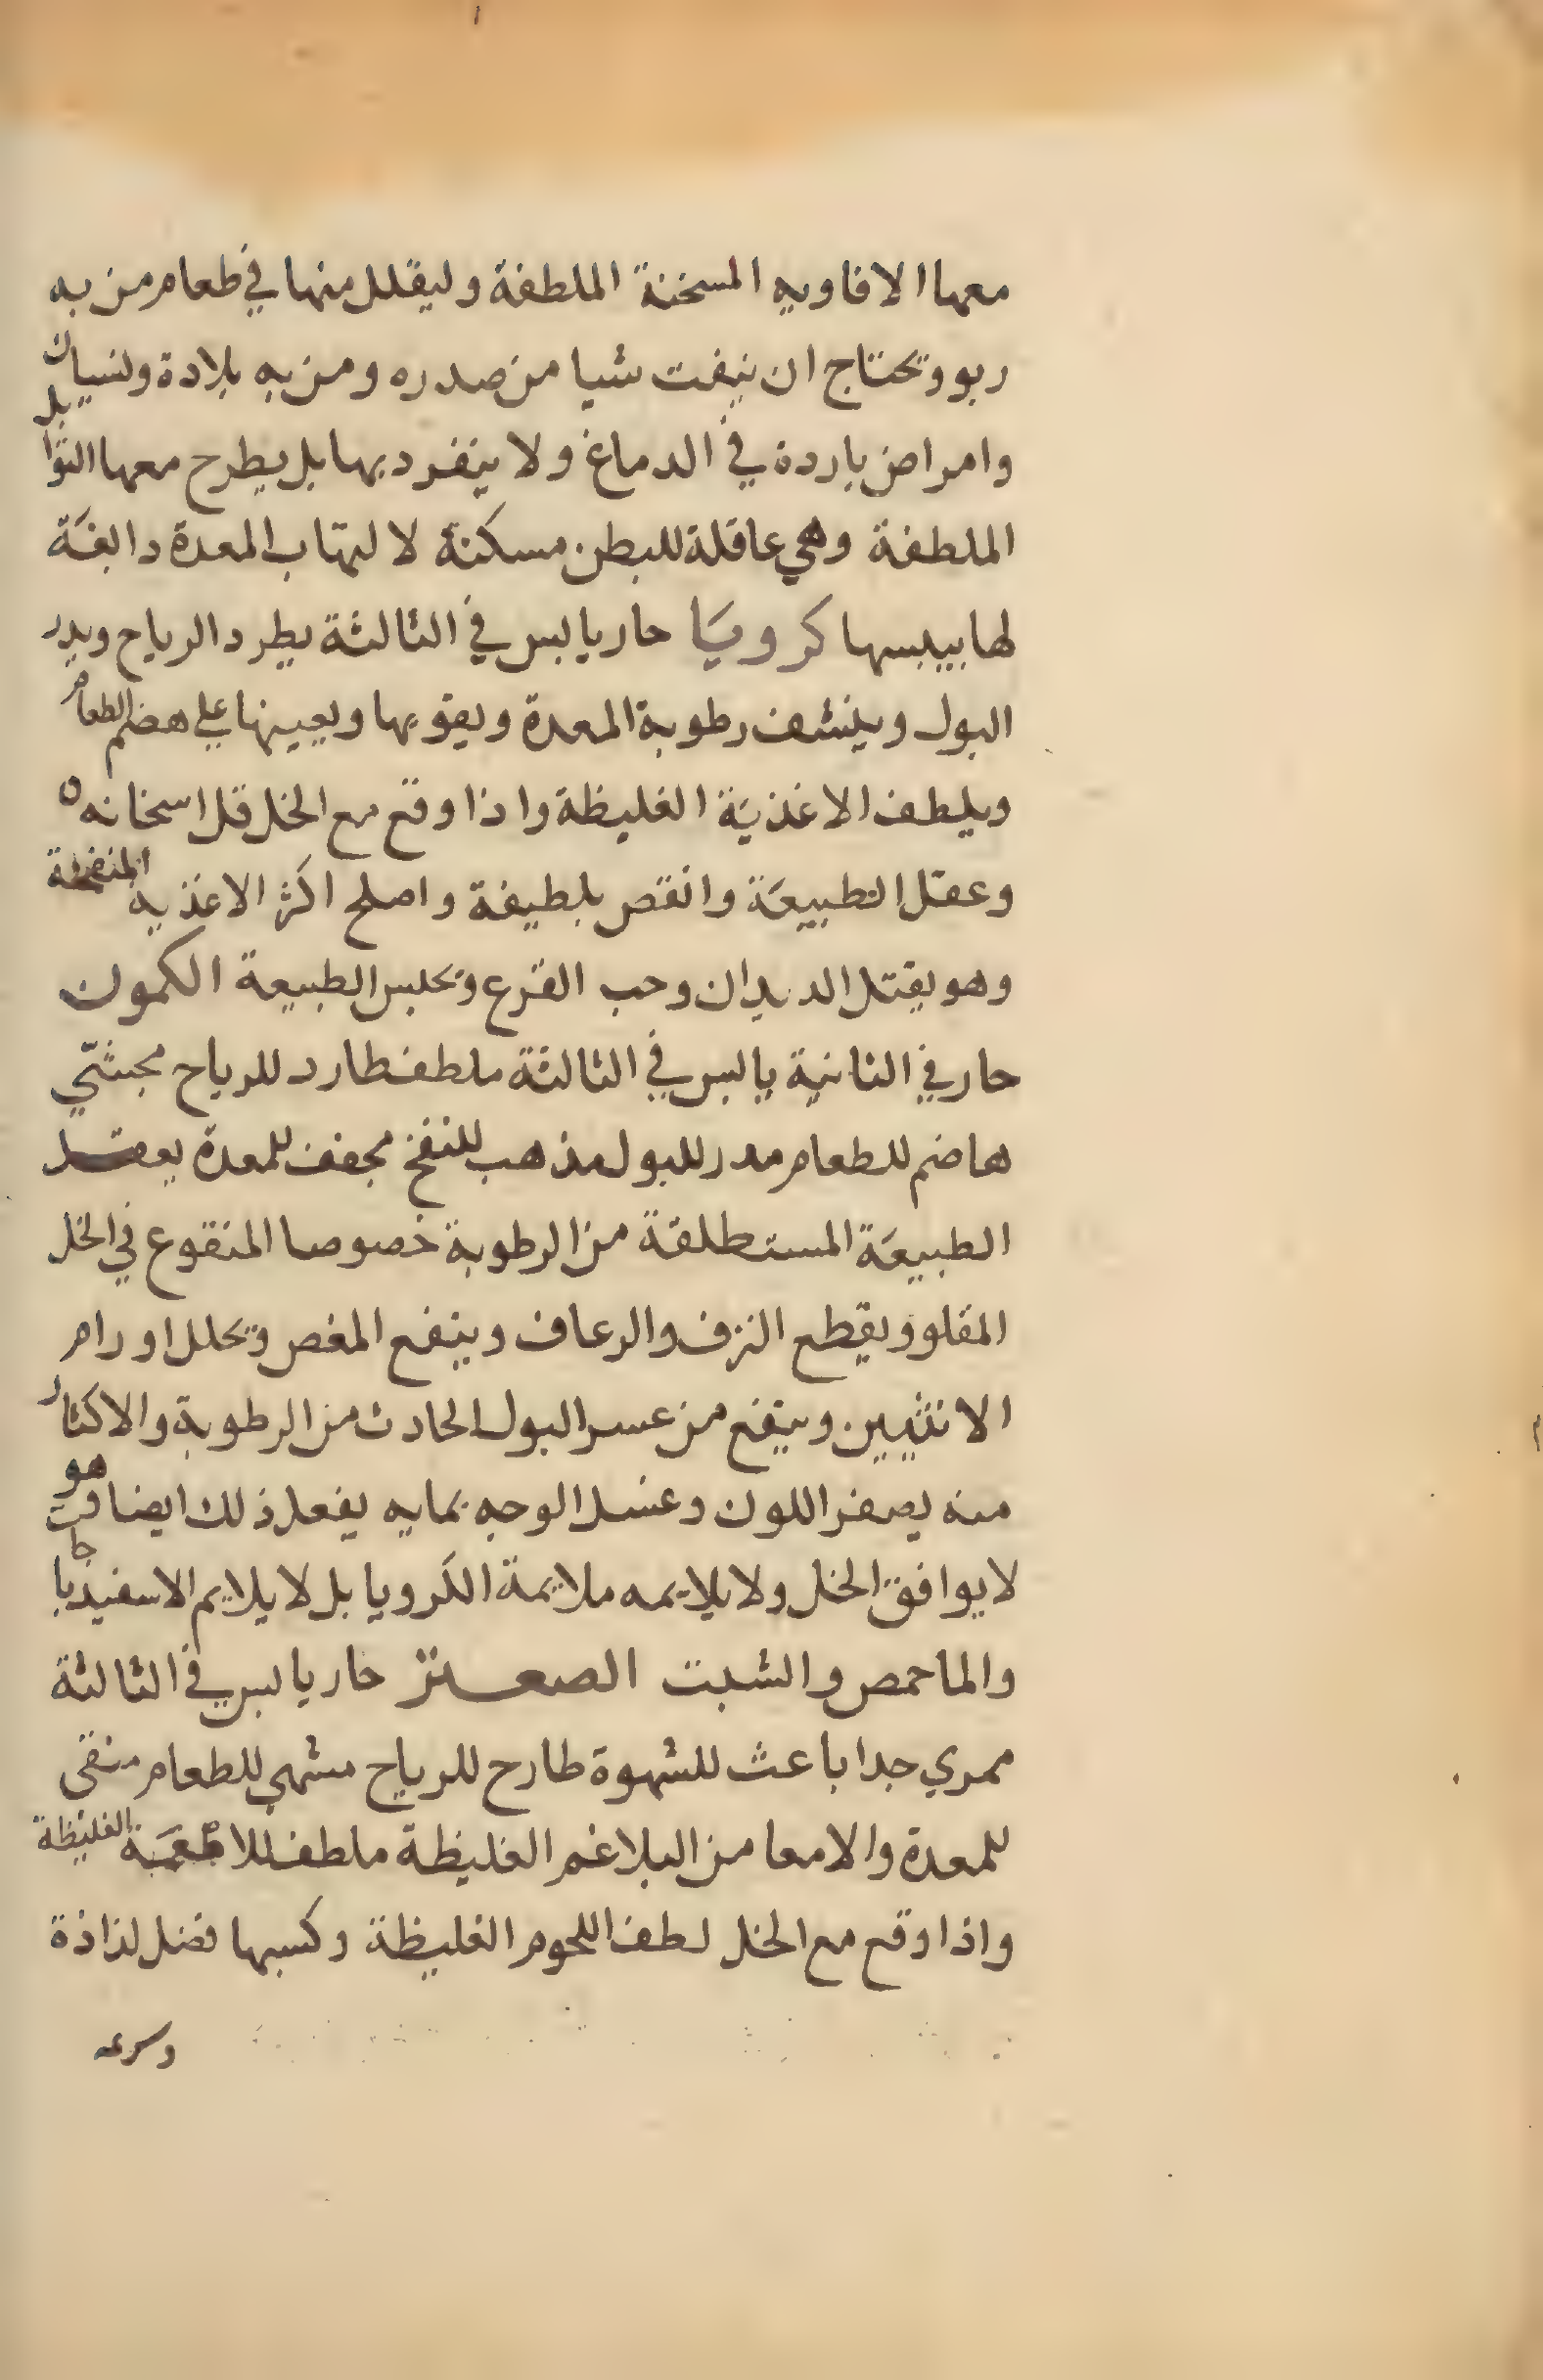 معها الافاويه المسخنة الملطفة وليقلل منها في طعام من به
ربو وتحتاج ان ينفت شيا من صدره ومن به بلادة ونسيان
وامراض باردة في الدماغ ولا ينفرد بها بل يطرح معها التوابل
الملطفة وهي عاقلة للبطن مسكنة لالتهاب المعدة دابغة
لها بيبسها كرويا حار يابس في الثالثة يطرد الرياح ويدر
البول وينشف رطوبة المعدة ويقويها ويعينها علي هضم الطعام
ويلطف الاغذية الغليظة واذا وقع مع الخل قل اسخانه ه
وعقل الطبيعة وانقص بلطيفة واصلح اكثر الاغذيه المنفخة
وهو يقتل الديدان وحب القرع وتحبس الطبيعة الكمون
حار في الثانية يابس في الثالثة ملطف طارد للرياح مجشّي
هاضم للطعام مدر للبول مذهب للنفخ مجفف للمعدة يعقل
الطبيعة المستطلقة من الرطوبة خصوصا المنقوع في الخل
المقلو ويقطع النزف والرعاف وينفع المغص وتحلل اورام
الانثيين وينفع من عسر البول الحادث من الرطوبة والاكثار
منه يصفر اللون وغسل الوجه بمايه يفعل ذلك ايضا وهو
لا يوافق الخل ولا يلايمه ملايمة الكرويا بل لا يلايم الاسفيذباجات
والماحمص والشبت الصعتر حار يابس في الثالثة
ممري جدا باعث للشهوة طارح للرياح مشهي للطعام منقى
للمعدة والامعا من البلاغم الغليظة ملطف للاطعمة الغليظة
واذا وقع مع الخل لطف اللحوم الغليظة وكسبها فضل لذاذة
وسرعه